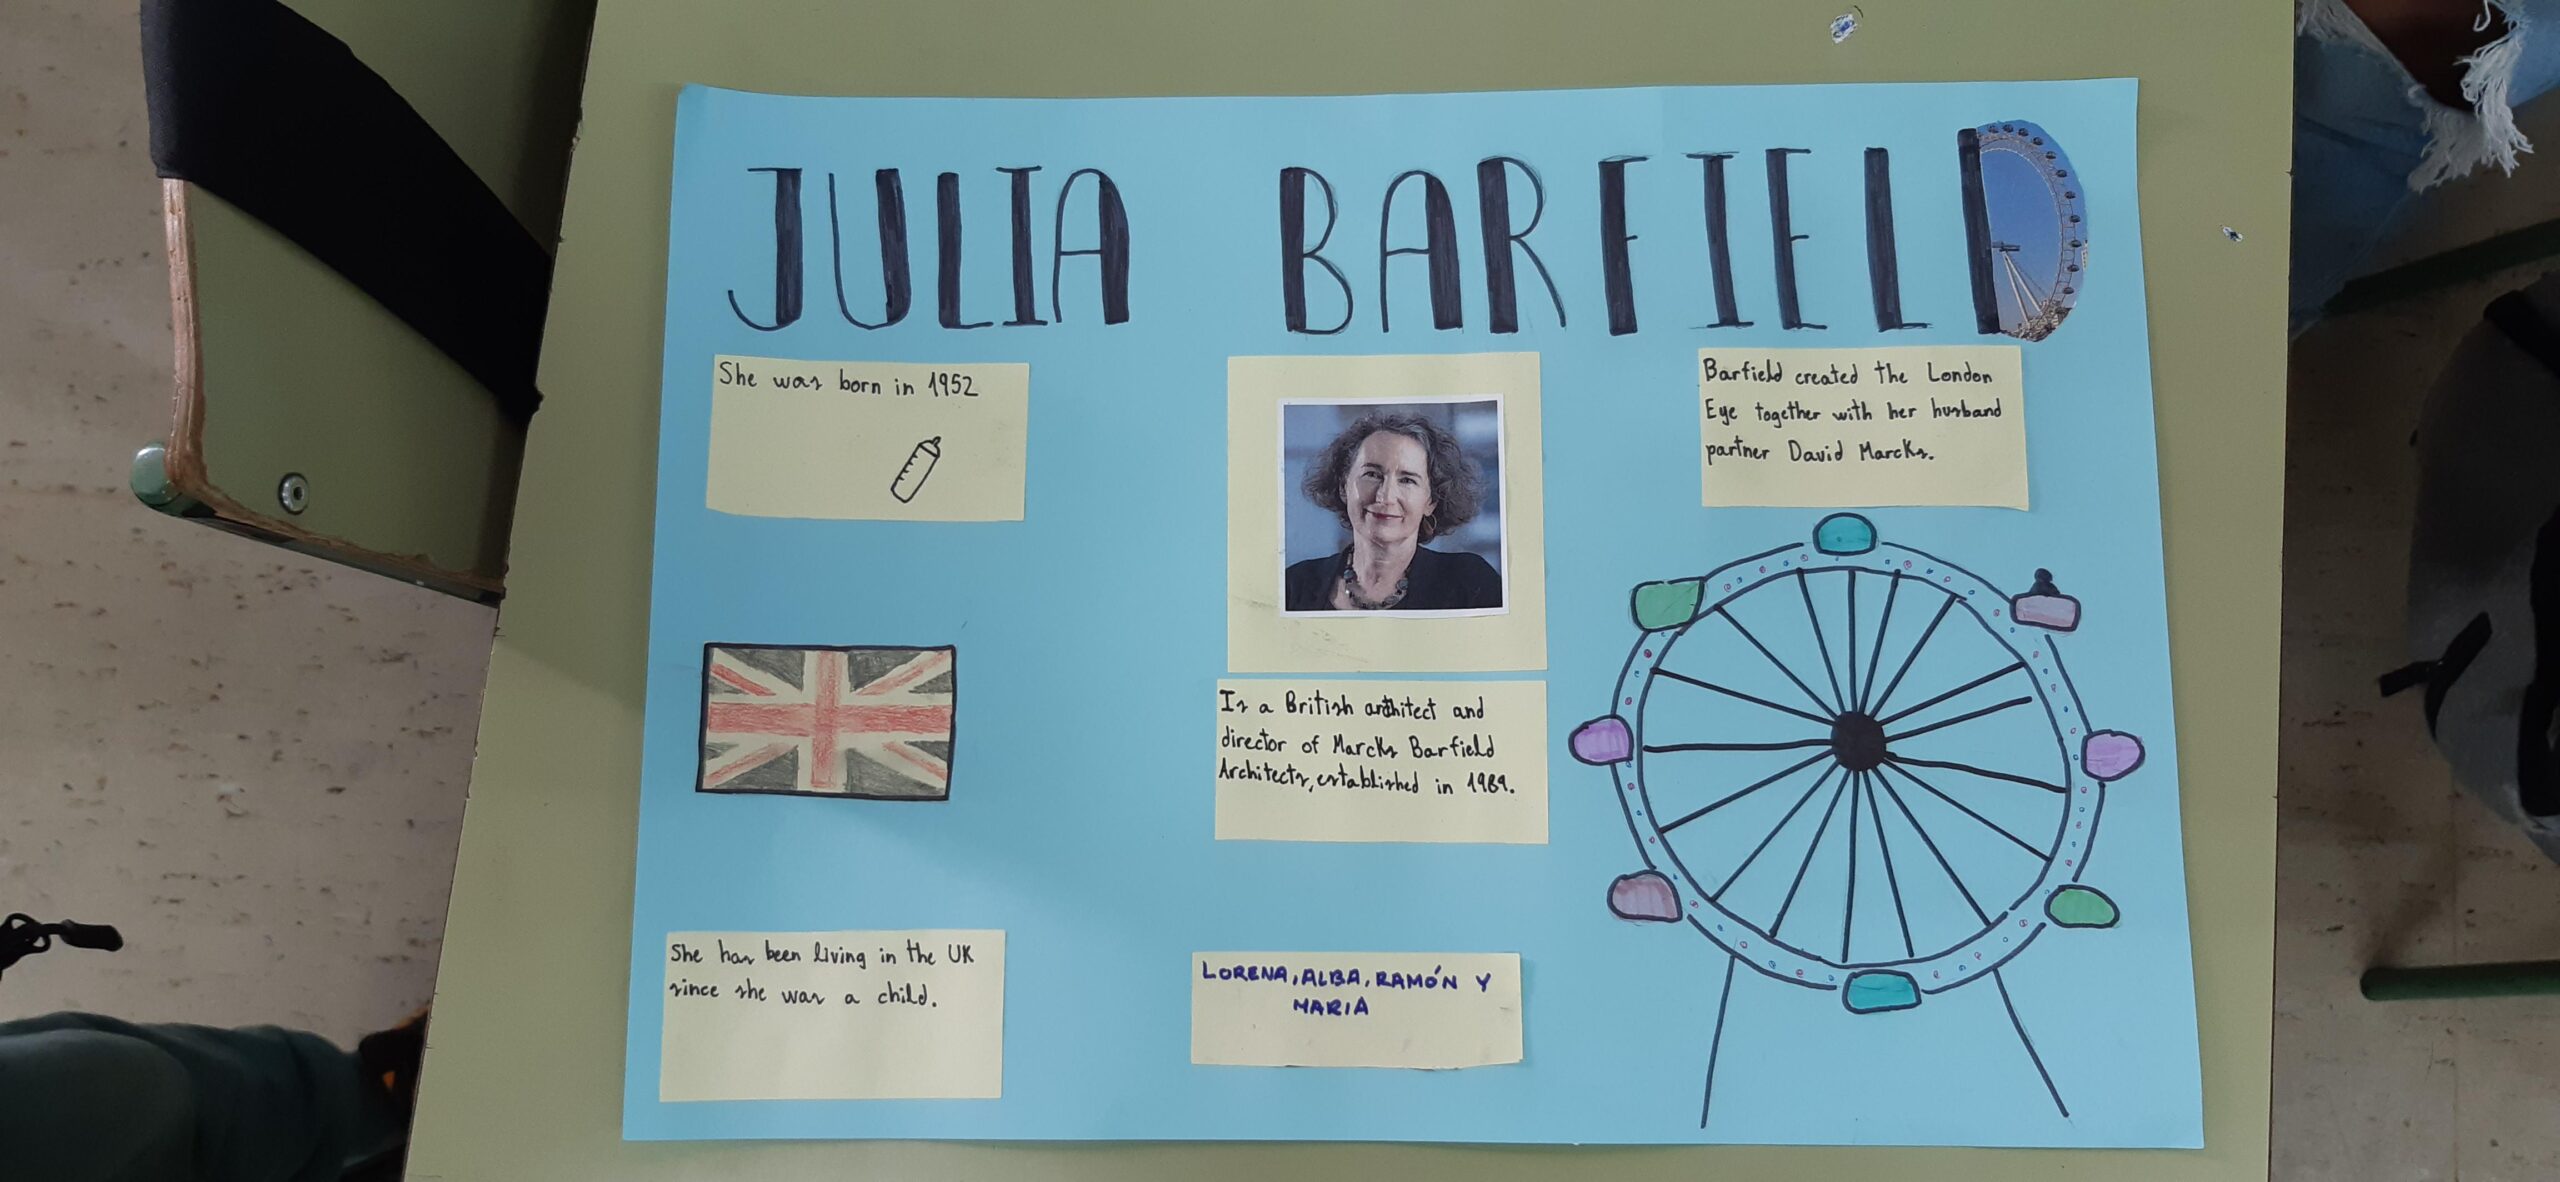 JULIA BARFIELD
She was born in 1952
Barfield created the London
Eye together with her husband
partner David Marcks.
Is a British architect and
director of Marcks Barfield
Architects, established in 1989.
She has been living in the UK
since she was a child.
LORENA, ALBA, RAMÓN Y
MARIA